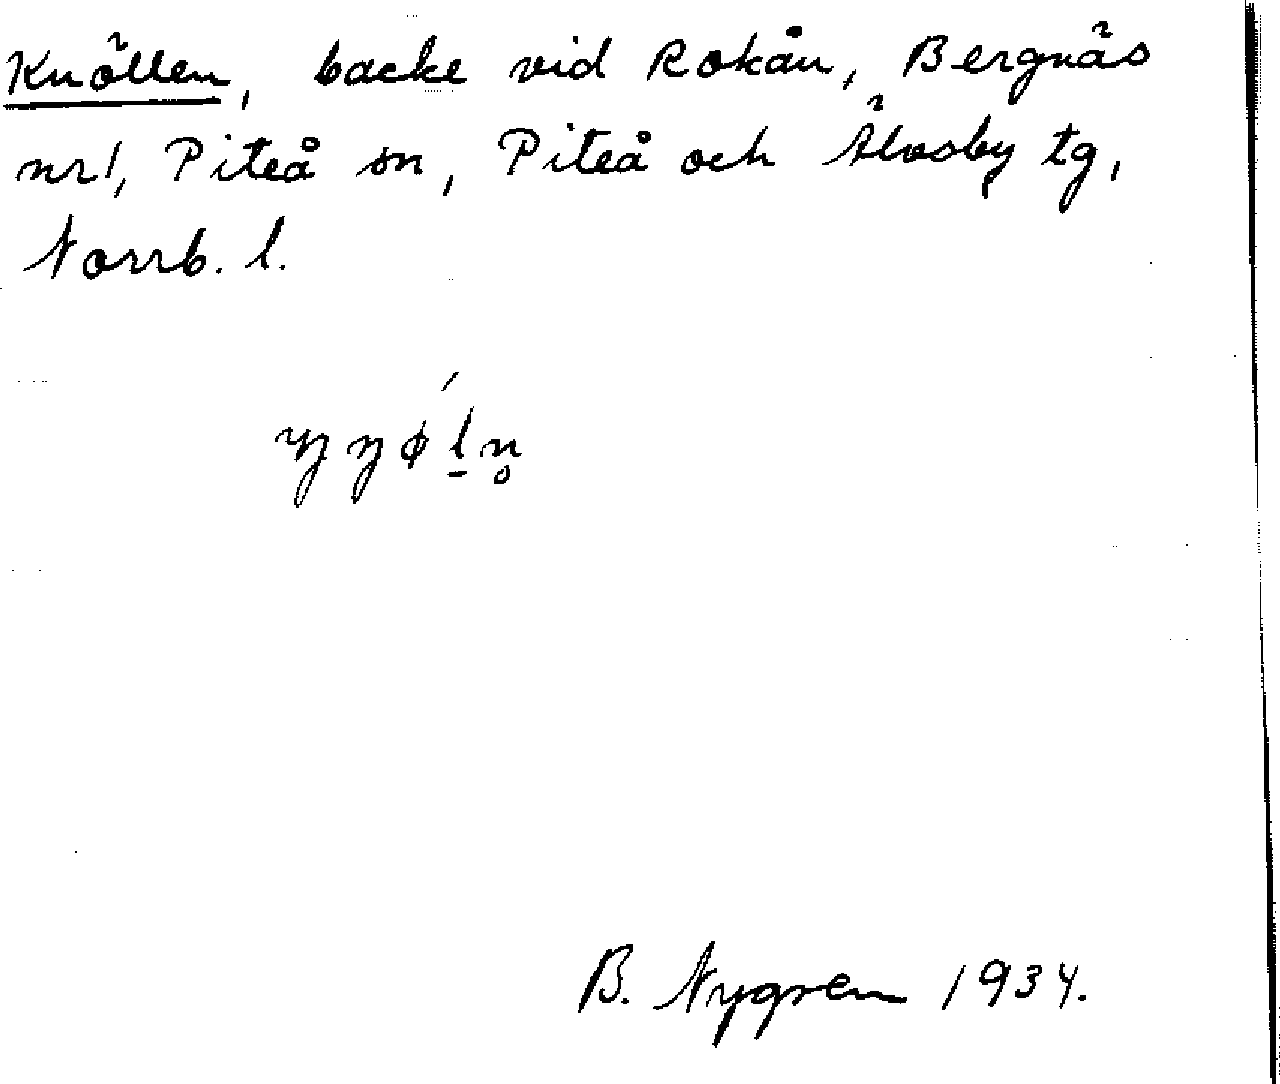 Knöllen, backe vid Rokån, Bergnäs
nr 1, Piteå sn, Piteå och Älvsby tg,
Norrb. l.
B. Nygren 1934.